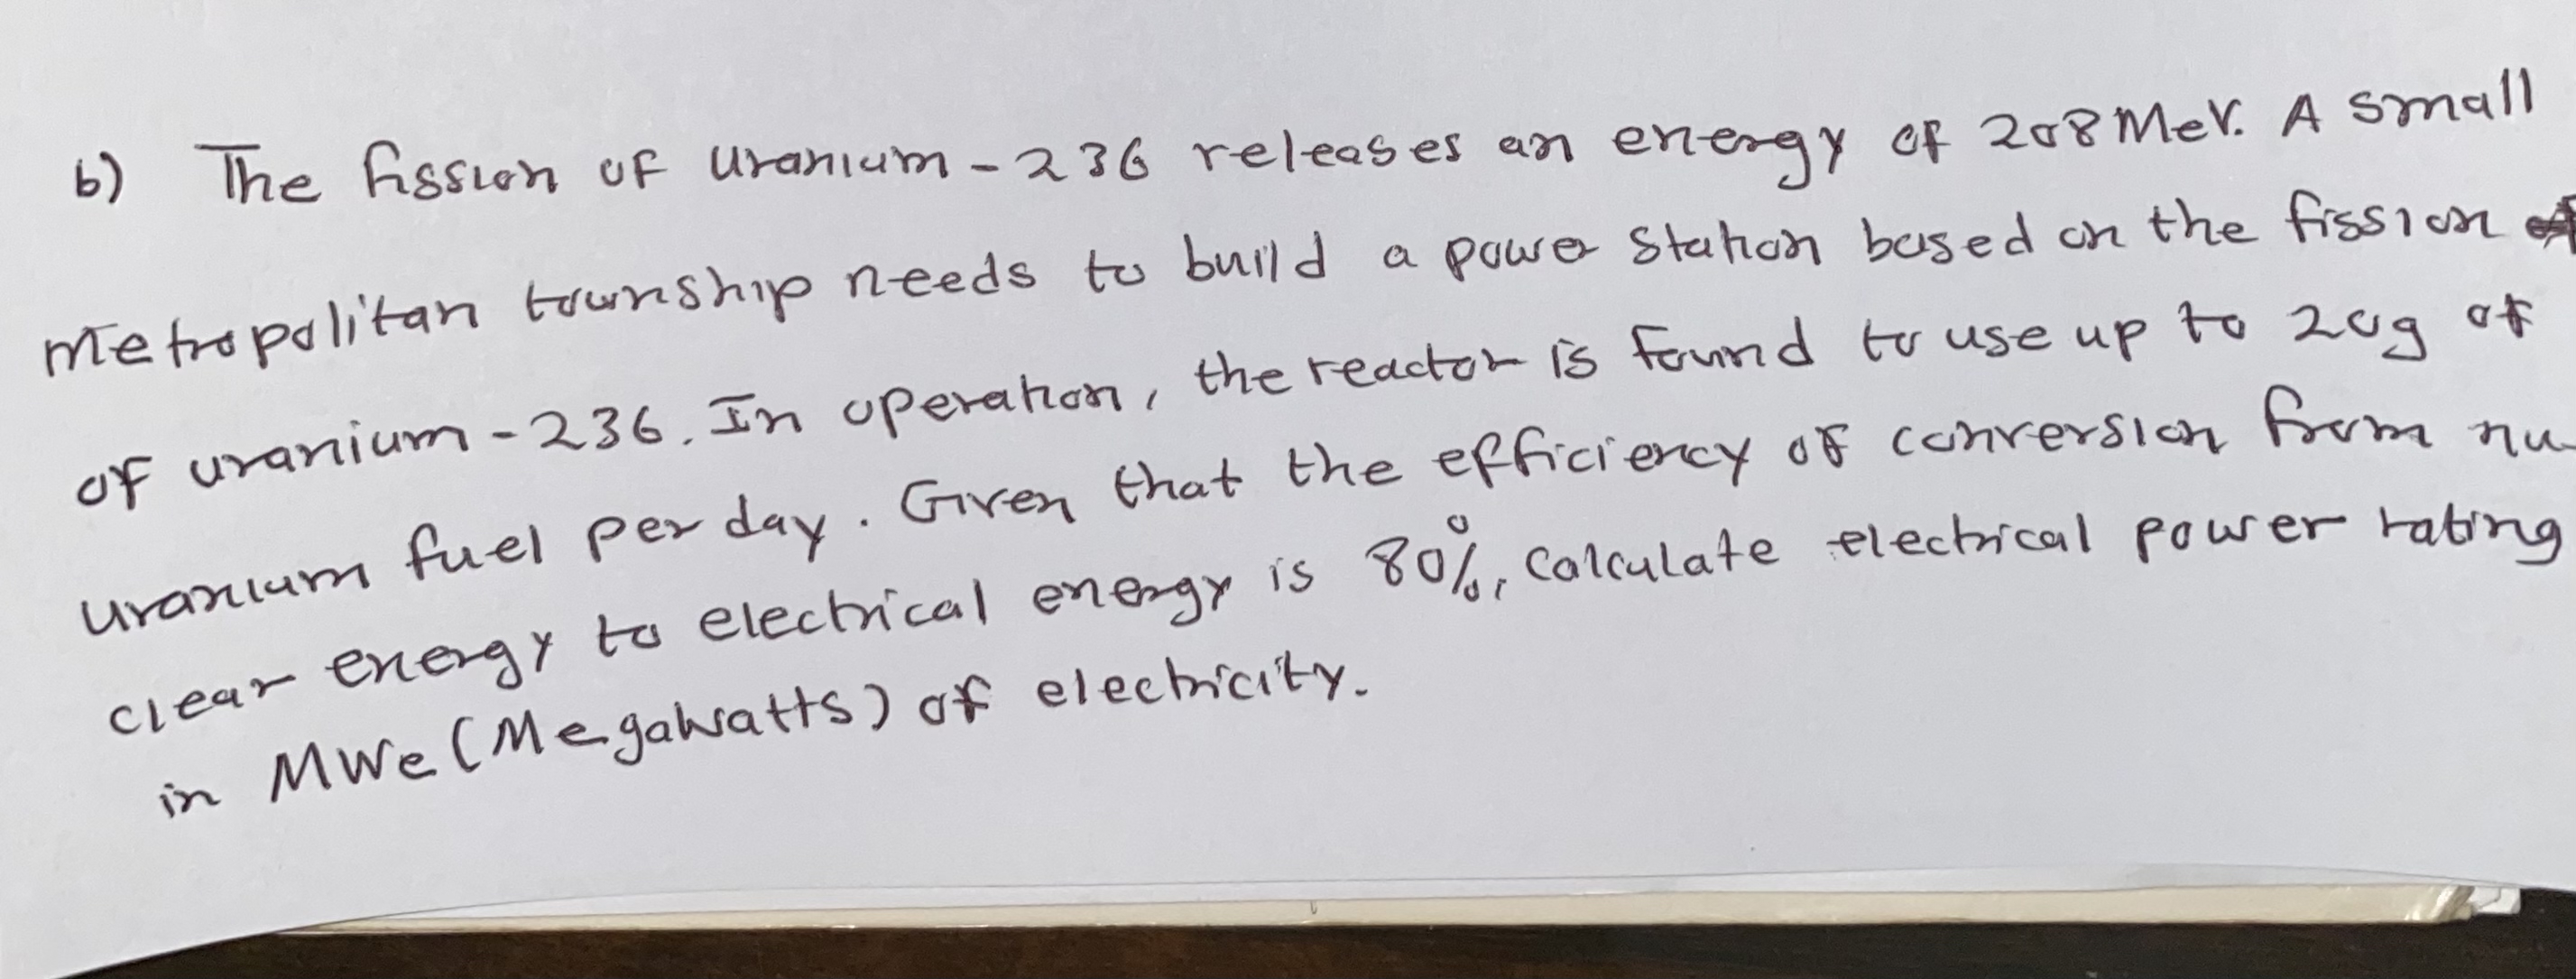 b) The fission of uranium-236 releases an energy of 208 MeV. A small
metropolitan township needs to build a power station based on the fission
of uranium-236. In operation, the reactor is found to use up to 20g of
uranium fuel per day. Given that the efficiency of conversion from nu-
clear energy to electrical energy is 80%, calculate electrical power rating
in MWe (Megawatts) of electricity.